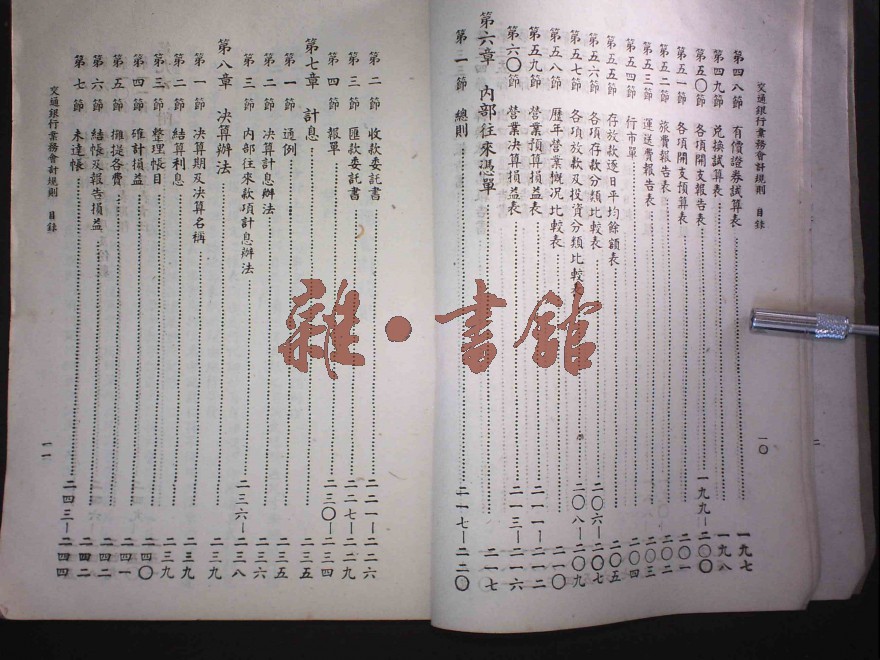 交通銀行業務會計規則 目錄 一〇
第四八節 有價證券試算表 一九七
第四九節 兌換試算表 一九八
第五〇節 各項開支報告表 一九九—二〇〇
第五一節 各項開支預算表 二〇一
第五二節 旅費報告表 二〇二
第五三節 運送費報告表 二〇三
第五四節 行市單 二〇四
第五五節 存放款逐日平均餘額表 二〇五
第五六節 各項存款分類比較表 二〇六—二〇七
第五七節 各項放款及投資分類比較表 二〇八—二〇九
第五八節 歷年營業概況比較表 二一〇
第五九節 營業預算損益表 二一一—二一二
第六〇節 營業決算損益表 二一三—二一六
第六章 內部往來憑單 二一七
第一節 總則 二一七—二二〇
第二節 收款委託書 二二一—二二六
第三節 匯款委託書 二二七—二二九
第四節 報單 二三〇—二三四
第七章 計息 二三五
第一節 通例 二三五
第二節 決算計息辦法 二三六
第三節 內部往來款項計息辦法 二三六—二三八
第八章 決算辦法 二三九
第一節 決算期及決算名稱 二三九
第二節 結算利息 二三九
第三節 整理帳目 二四〇
第四節 確計損益 二四一
第五節 攤提各費 二四二
第六節 結帳及報告損益 二四二
第七節 未達帳 二四三—二四四
交通銀行業務會計規則 目錄 一一
雜·書館